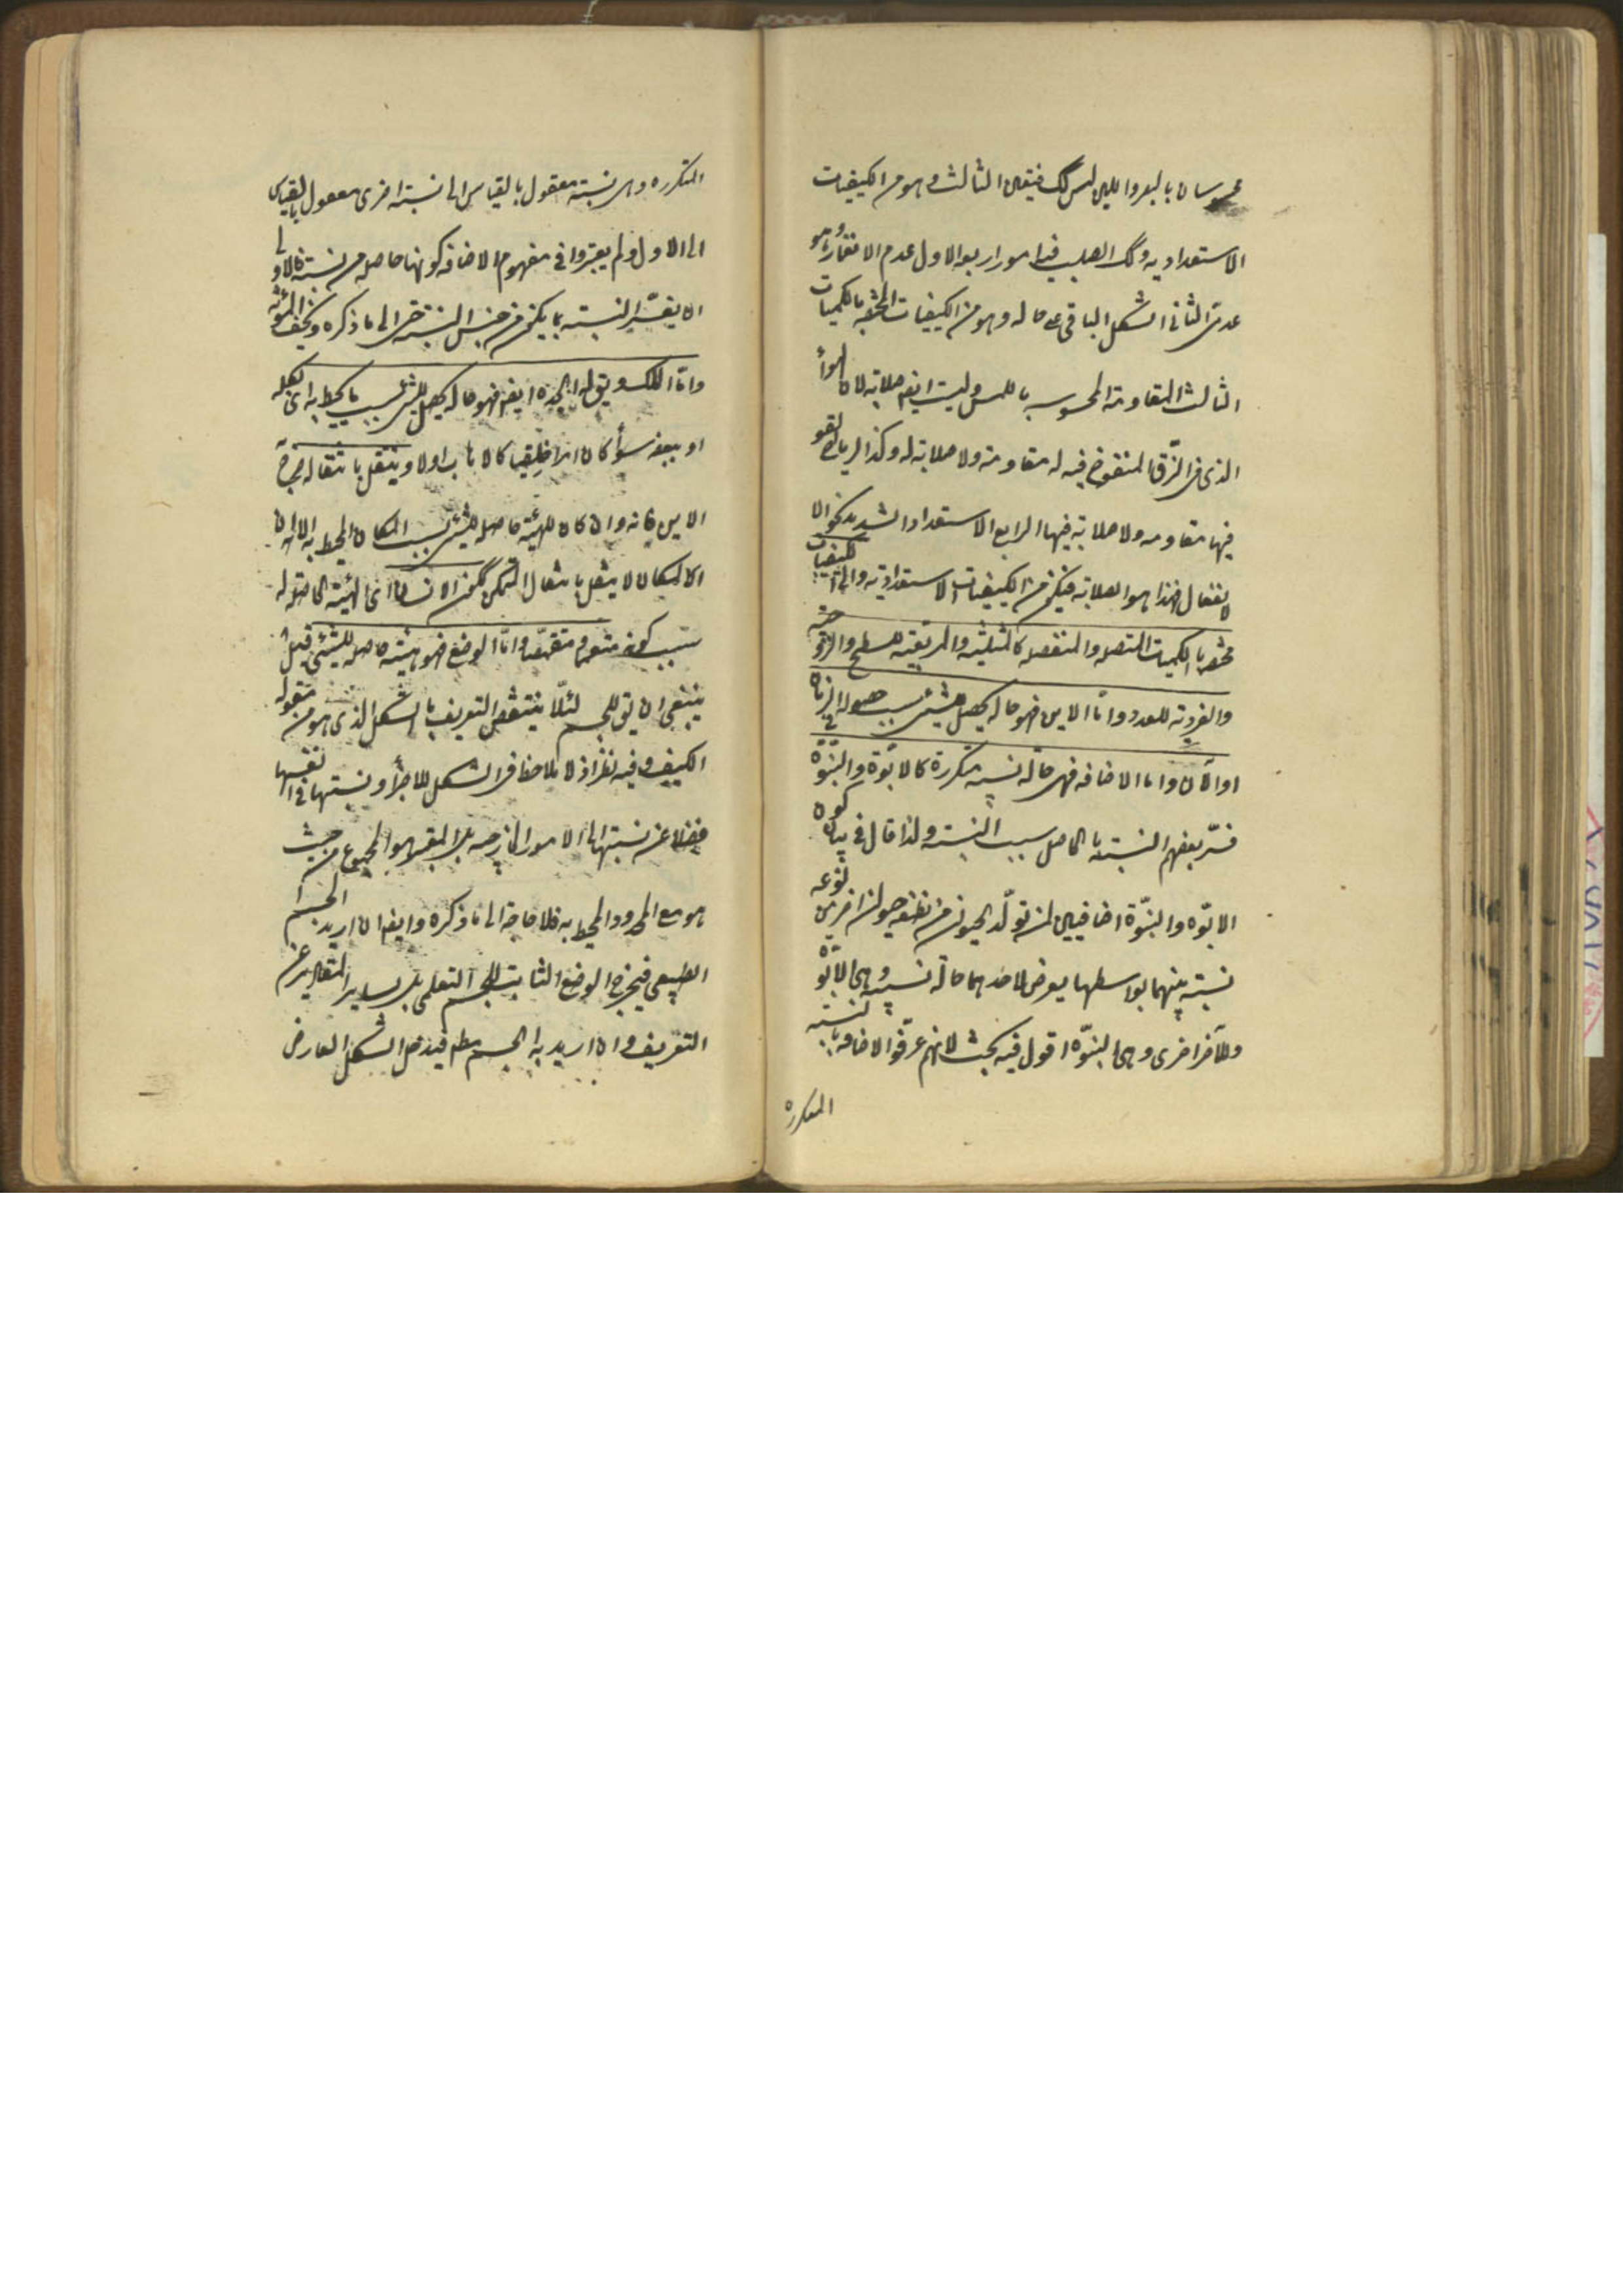 محسوسان بالبصر واللين ليس كك فيتعين الثالث وهو من الكيفيات
الاستعدادية وكك الصلب فيه امور اربعة الاول عدم الانغماز وهو
عدمى الثانى الشكل الباقى على حاله وهو من الكيفيات المختصة بالكميات
الثالث المقاومة المحسوسة باللمس وليست ايضا صلابة لان الهواء
الذى فى الزق المنفوخ فيه له مقاومة ولا صلابة له وكذا الرياح القوية
فيها مقاومة ولا صلابة فيها الرابع الاستعداد الشديد نحو اللا
انفعال فهذا هو الصلابة فيكون من الكيفيات الاستعدادية والى كيفيات
مختصة بالكميات المتصلة والمنفصلة كالمثلثية والمربعية للسطح والزوجية
والفردية للعدد واما الاين فهو حالة يحصل للشئ بسبب حصوله فى الزمان
او الآن واما الاضافة فهى حالة نسبية متكررة كالابوة والبنوة
فسر بعضهم النسبية بالحاصل بسبب النسبة ولذا قال فى بيان كون
الابوة والبنوة اضافيين ان تولد الحيوان من نطفة حيوان آخر من نوعه
نسبة بينهما بواسطتها يعرض لاحدهما حالة نسبية وهى الابوة
وللآخر اخرى وهى البنوة اقول فيه بحث لانهم عرفوا الاضافة بالنسبة
المتكررة
المتكررة وهى نسبة معقول بالقياس الى نسبة اخرى معقول بالقياس
الى الاول ولم يعتبروا فى مفهوم الاضافة كونها حاصلة من نسبة فالاولى
ان يفسر النسبية بما يكون من جنس النسبة حتى الى ما ذكره ويخف المؤنة
واما الملك ويق له الجدة ايضا فهو حالة يحصل للشئ بسبب ما يحيط به اى بكله
او ببعضه سواء كان امرا خلقيا كالاهاب اولا وينتقل بانتقاله خرج
الاين فانه وان كان للهيئة حاصلة للشئ بسبب المكان المحيط به الا ان
المكان لا ينتقل بانتقال المتمكن ككون الانسان اى الهيئة الحاصلة له
بسبب كونه متعمما متقمصا واما الوضع فهو هيئة حاصلة للشئ قيل
ينبغى ان يق للجسم لئلا ينتقض التعريف بالشكل الذى هو من مقولة
الكيف وفيه نظر اذ لا يلاحظ فى الشكل للاجزاء ونسبتها فى انفسها
فضلا عن نسبتها الى الامور الخارجية بل المعتبر هو المجموع من حيث
هو مع الحدود المحيط به فلا حاجة الى ما ذكره وايضا ان اريد بالجسم
الطبيعى فيخرج الوضع الثابت للجسم التعليمى عن
التعريف وان اريد به الجسم مطلقا فيدخل الشكل العارض